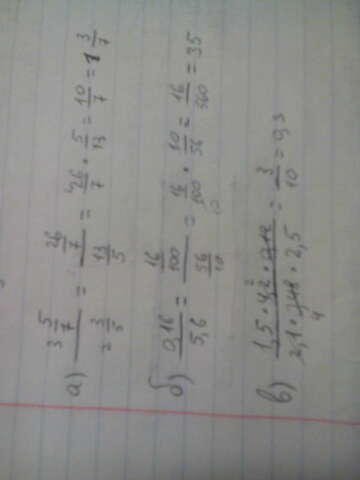 а) (3 5/7)/(2 3/5) = (26/7)/(13/5) = 26/7 · 5/13 = 10/7 = 1 3/7
б) 0,16/5,6 = (16/100)/(56/10) = 16/100 · 10/56 = 16/560 = 35
в) (1,5 · 4,2 · )/(2,1 · · 2,5) = 3/10 = 0,3